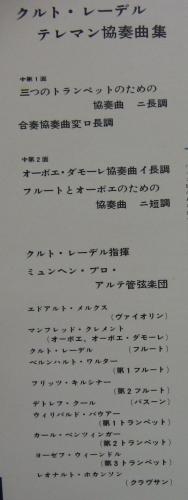 クルト・レーデル
テレマン協奏曲集
中第1面
三つのトランペットのための
協奏曲 ニ長調
合奏協奏曲変ロ長調
中第2面
オーボエ・ダモーレ協奏曲イ長調
フルートとオーボエのための
協奏曲 ニ短調
クルト・レーデル指揮
ミュンヘン・プロ・
アルテ管弦楽団
エドアルト・メルクス
(ヴァイオリン)
マンフレッド・クレメント
(オーボエ、オーボエ・ダモーレ)
クルト・レーデル (フルート)
ベルンハルト・ワルター
(第1フルート)
フリッツ・キルシナー
(第2フルート)
デトレフ・クール (バスーン)
ウィリバルド・バウアー
(第1トランペット)
カール・ベンツィンガー
(第2トランペット)
ヨーゼフ・ウィーンドル
(第3トランペット)
レオナルト・ホカンソン
(クラヴサン)